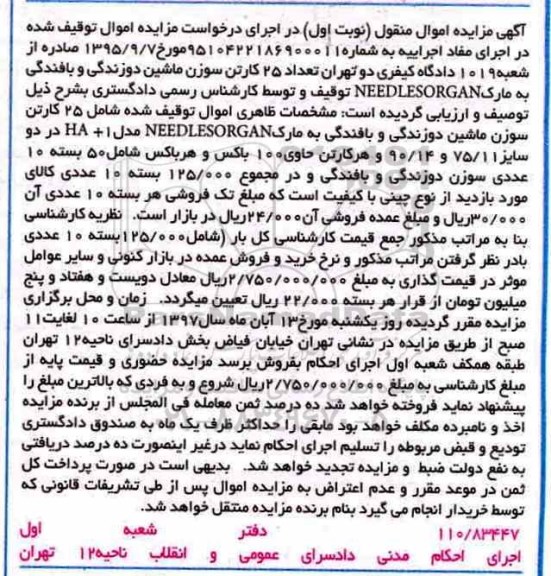 آگهی مزایده اموال منقول (نوبت اول) در اجرای درخواست مزایده اموال توقیف شده
در اجرای مفاد اجراییه به شماره۹۵۱۰۴۲۲۱۸۶۹۰۰۰۱۱مورخ۱۳۹۵/۹/۷ صادره از
شعبه۱۰۱۹ دادگاه کیفری دو تهران تعداد ۲۵ کارتن سوزن ماشین دوزندگی و بافندگی
به مارکNEEDLESORGAN توقیف و توسط کارشناس رسمی دادگستری بشرح ذیل
توصیف و ارزیابی گردیده است: مشخصات ظاهری اموال توقیف شده شامل ۲۵ کارتن
سوزن ماشین دوزندگی و بافندگی به مارکNEEDLESORGAN مدل۱+ HA در دو
سایز۷۵/۱۱ و ۹۰/۱۴ و هرکارتن حاوی۱۰۰ باکس و هرباکس شامل۵۰ بسته ۱۰
عددی سوزن دوزندگی و بافندگی و در مجموع ۱۲۵/۰۰۰ بسته ۱۰ عددی کالای
مورد بازدید از نوع چینی با کیفیت است که مبلغ تک فروشی هر بسته ۱۰ عددی آن
۳۰/۰۰۰ریال و مبلغ عمده فروشی آن۲۴/۰۰۰ریال در بازار است. نظریه کارشناسی
بنا به مراتب مذکور جمع قیمت کارشناسی کل بار (شامل۱۲۵/۰۰۰بسته ۱۰ عددی
بادر نظر گرفتن مراتب مذکور و نرخ خرید و فروش عمده در بازار کنونی و سایر عوامل
موثر در قیمت گذاری به مبلغ ۲/۷۵۰/۰۰۰/۰۰۰ریال معادل دویست و هفتاد و پنج
میلیون تومان از قرار هر بسته ۲۲/۰۰۰ ریال تعیین میگردد. زمان و محل برگزاری
مزایده مقرر گردیده روز یکشنبه مورخ۱۳ آبان ماه سال۱۳۹۷ از ساعت ۱۰ لغایت۱۱
صبح از طریق مزایده در نشانی تهران خیابان فیاض بخش دادسرای ناحیه۱۲ تهران
طبقه همکف شعبه اول اجرای احکام بفروش برسد مزایده حضوری و قیمت پایه از
مبلغ کارشناسی به مبلغ ۲/۷۵۰/۰۰۰/۰۰۰ریال شروع و به فردی که بالاترین مبلغ را
پیشنهاد نماید فروخته خواهد شد ده درصد ثمن معامله فی المجلس از برنده مزایده
اخذ و نامبرده مکلف خواهد بود مابقی را حداکثر ظرف یک ماه به صندوق دادگستری
تودیع و قبض مربوطه را تسلیم اجرای احکام نماید درغیر اینصورت ده درصد دریافتی
به نفع دولت ضبط و مزایده تجدید خواهد شد. بدیهی است در صورت پرداخت کل
ثمن در موعد مقرر و عدم اعتراض به مزایده اموال پس از طی تشریفات قانونی که
توسط خریدار انجام می گیرد بنام برنده مزایده منتقل خواهد شد.
۱۱۰/۸۳۴۴۷ دفتر شعبه اول
اجرای احکام مدنی دادسرای عمومی و انقلاب ناحیه۱۲ تهران